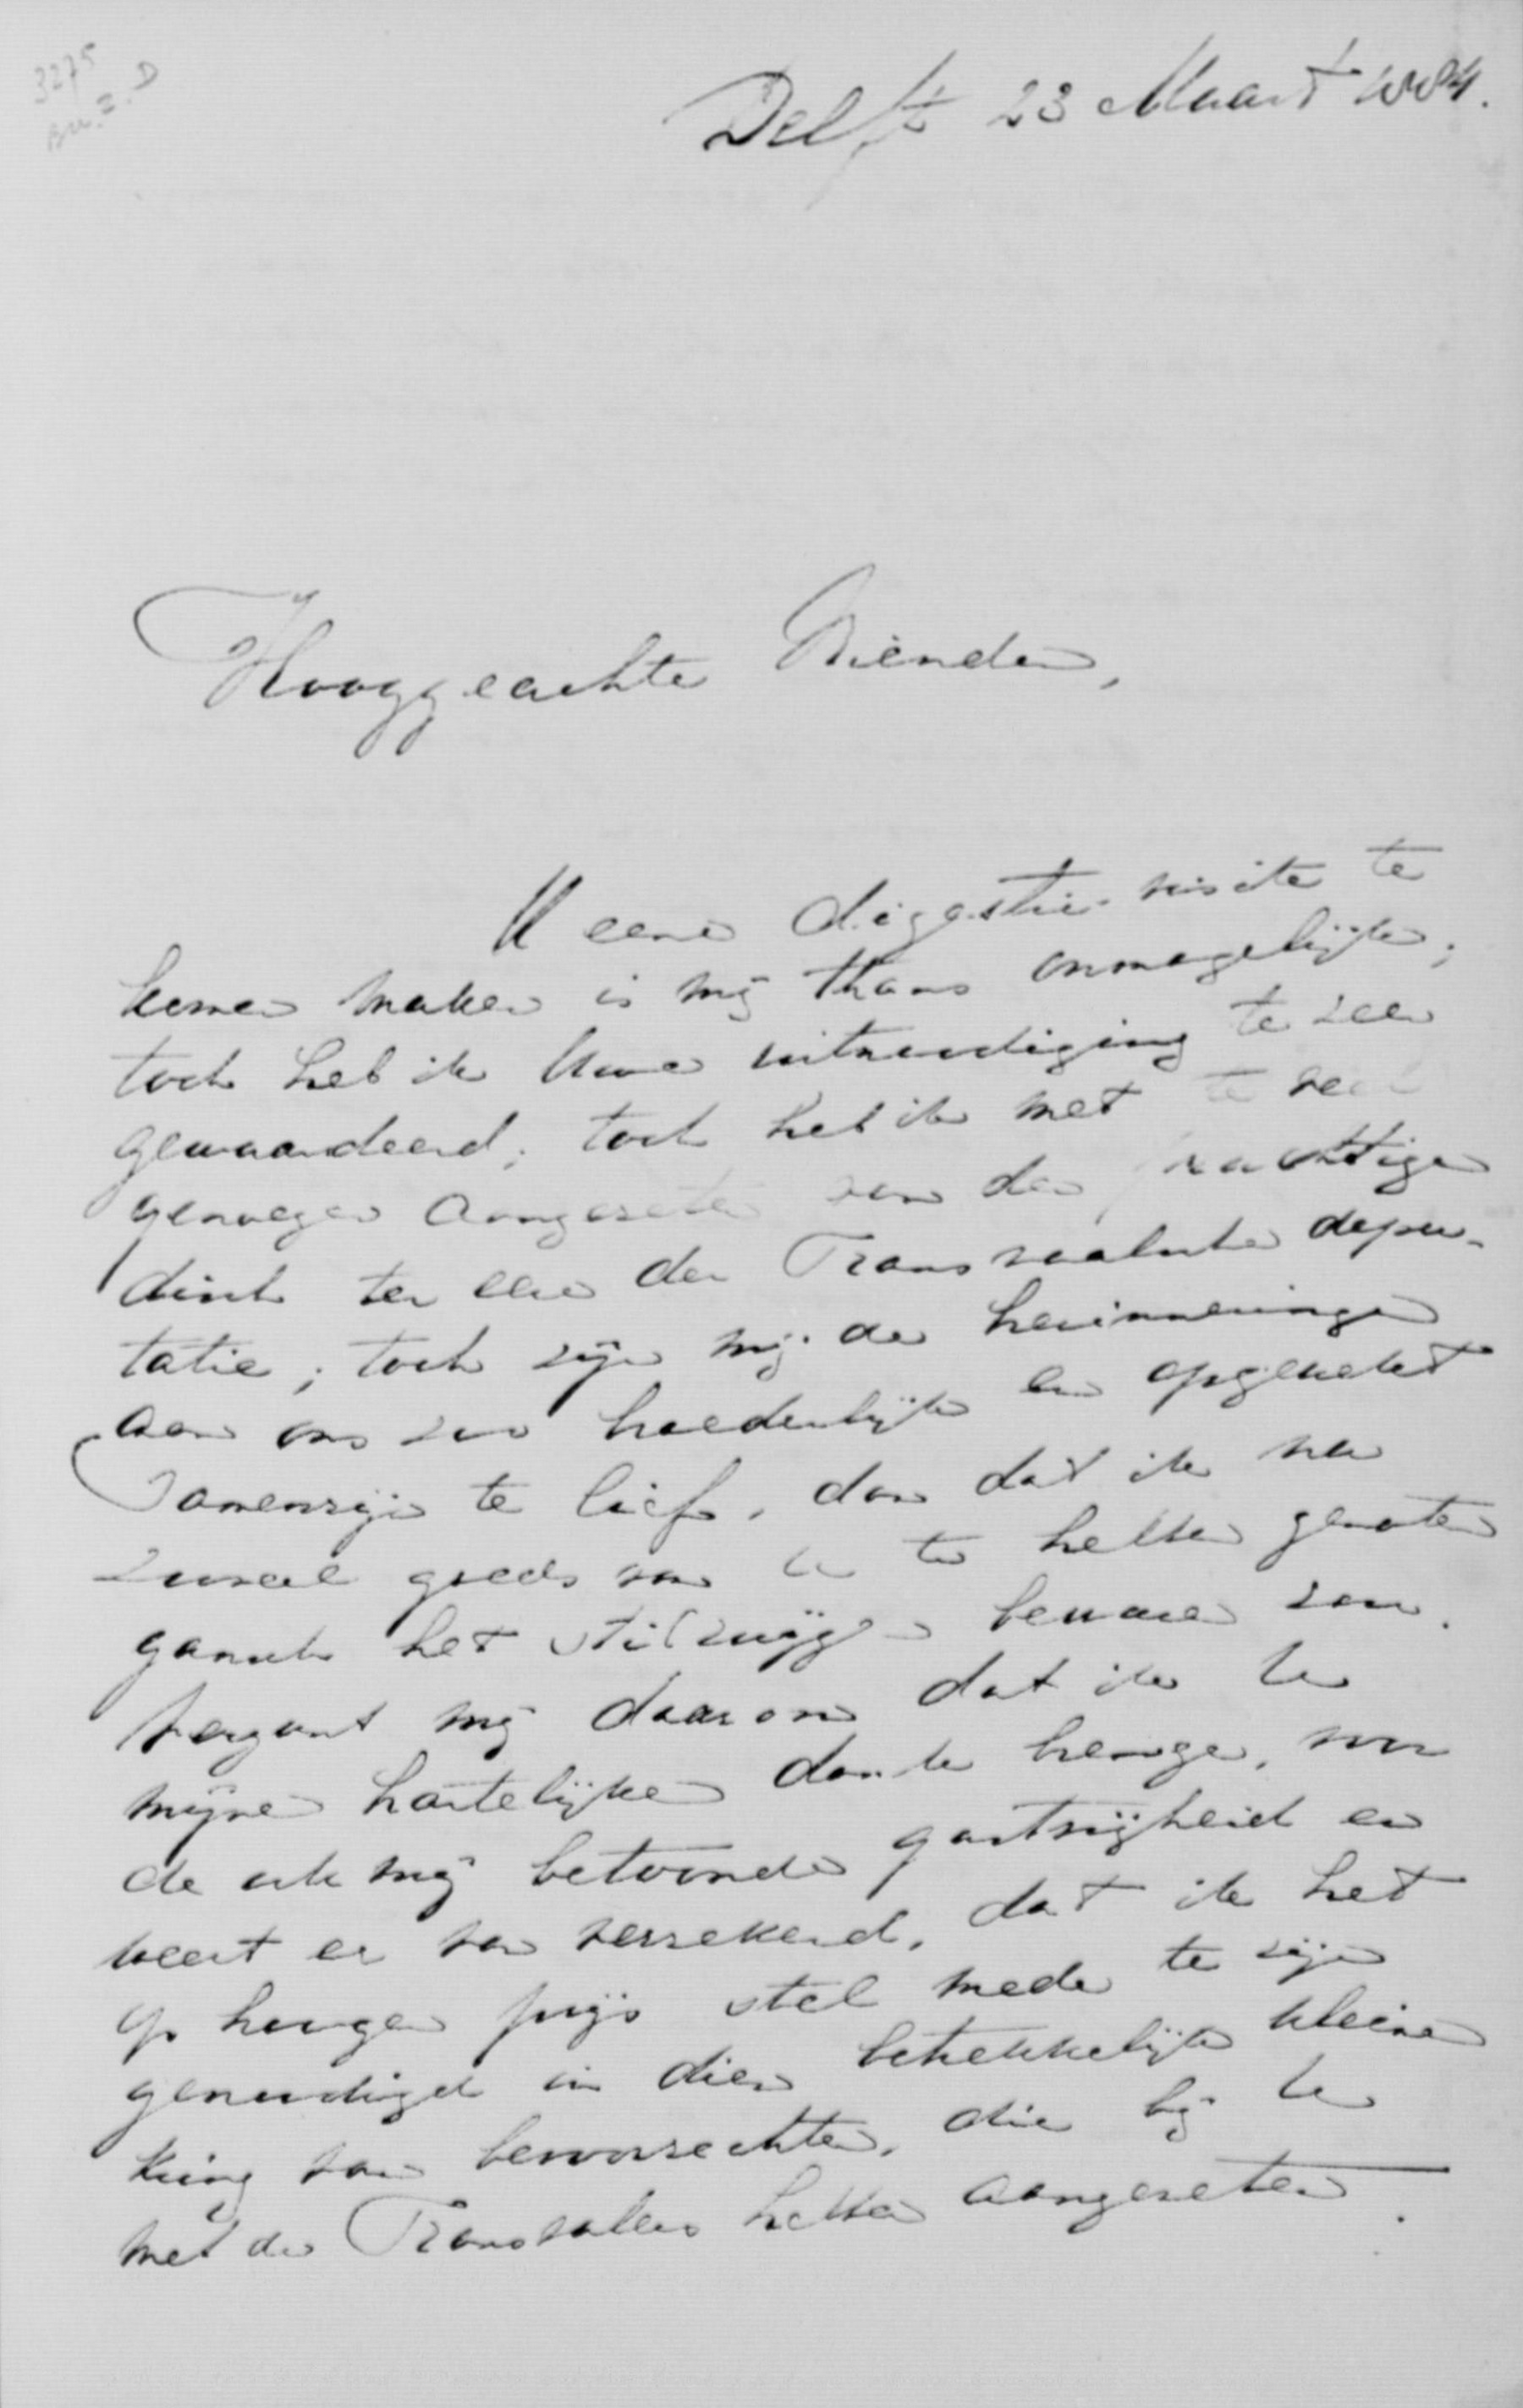 3275
Delft 23 Maart 1884.
Hooggeachte Vrienden,
U eene digestie-visite te
komen maken is mij thans onmogelijk;
toch heb ik Uwe uitnoodiging te zeer
gewaardeerd; toch heb ik met te veel
genoegen aangezeten aan den prachtigen
disch ter eere der Transvaalsche depu-
tatie; toch zijn mij de herinneringen
aan ons zoo broederlijk en opgewekt
samenzijn te lief, dan dat ik na
zooveel goeds van U te hebben genoten
gansch het stilzwijgen bewaren zou.
Vergunt mij daarom dat ik U
mijne hartelijken dank brenge, voor
de ook mij betoonde gastvrijheid en
weest er van verzekerd, dat ik het
op hoogen prijs stel mede te zijn
genoodigd in dien betrekkelijk kleinen
kring van bevoorrechten, die bij U
met de Transvalers hebben aangezeten.